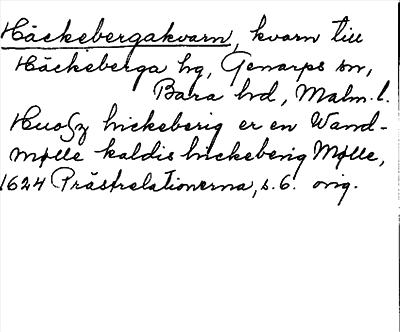 Häckebergakvarn, kvarn till
Häckeberga hg, Genarps sn,
Bara hd, Malm. l.
Huosz hickeberig er en Wand-
mølle kaldis hickeberig Mølle,
1624 Prästrelationerna, s. 6. orig.